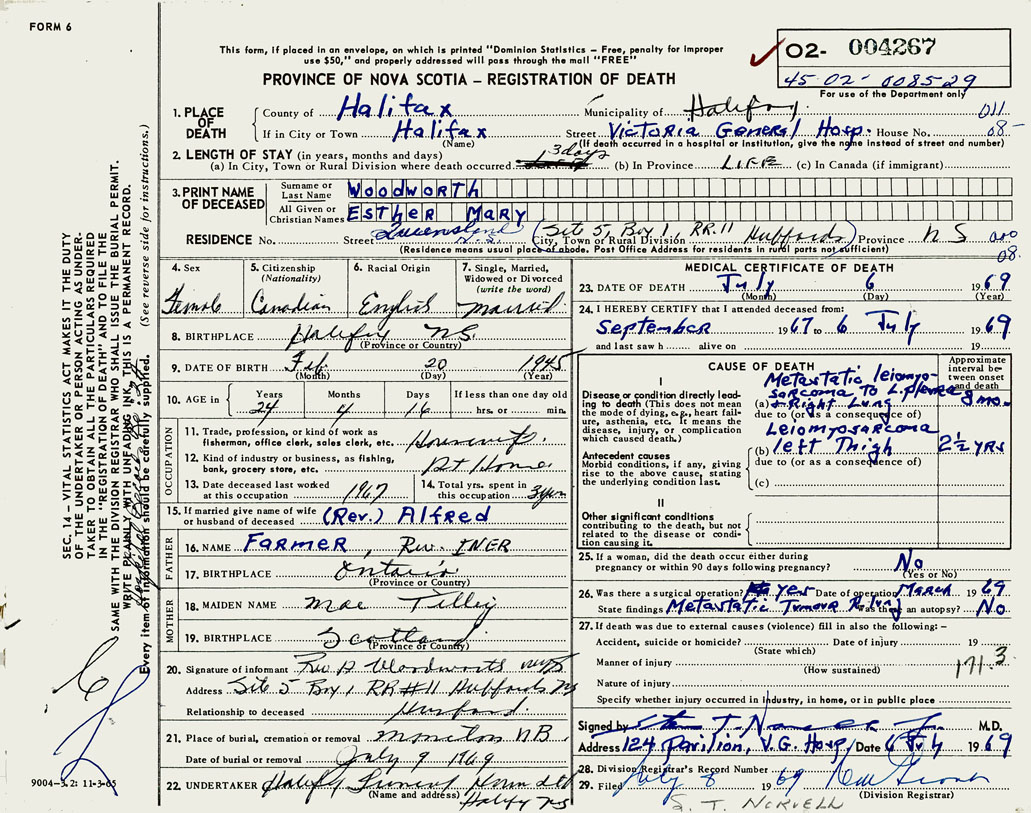 FORM 6
This form, if placed in an envelope, on which is printed "Dominion Statistics – Free, penalty for improper
use $50," and properly addressed will pass through the mail "FREE"
PROVINCE OF NOVA SCOTIA – REGISTRATION OF DEATH
02- 004267
45-02-008529
For use of the Department only
1. PLACE OF DEATH
County of Halifax Municipality of Halifax 011
If in City or Town Halifax Street Victoria General Hosp. House No. 08-
(Name) (If death occurred in a hospital or institution, give the name instead of street and number)
2. LENGTH OF STAY (in years, months and days) 3 days
(a) In City, Town or Rural Division where death occurred (b) In Province LIFE (c) In Canada (if immigrant)
3. PRINT NAME OF DECEASED
Surname or Last Name WOODWORTH
All Given or Christian Names ESTHER MARY
Queensland (Site 5, Box 1, RR.11 Hubbards)
RESIDENCE No. Street N.S. City, Town or Rural Division Province N S 000
(Residence means usual place of abode. Post Office Address for residents in rural parts not sufficient) 08
4. Sex Female
5. Citizenship (Nationality) Canadian
6. Racial Origin English
7. Single, Married, Widowed or Divorced (write the word) married
8. BIRTHPLACE Halifax N.S.
(Province or Country)
9. DATE OF BIRTH Feb 20 1945
(Month) (Day) (Year)
10. AGE in Years Months Days If less than one day old
24 4 16 hrs. or min.
OCCUPATION
11. Trade, profession, or kind of work as
fisherman, office clerk, sales clerk, etc. Housewife
12. Kind of industry or business, as fishing,
bank, grocery store, etc. At Home
13. Date deceased last worked
at this occupation 1967
14. Total yrs. spent in
this occupation
15. If married give name of wife
or husband of deceased (Rev.) Alfred
FATHER
16. NAME FARMER, Rev. INER
17. BIRTHPLACE Ontario
(Province or Country)
MOTHER
18. MAIDEN NAME Mae Tilley
19. BIRTHPLACE Scotland
(Province or Country)
20. Signature of informant Rev A Woodworth
Address Site 5 Box 1 RR#11 Hubbards NS
Relationship to deceased Husband
21. Place of burial, cremation or removal Moncton N.B.
Date of burial or removal July 9 1969
22. UNDERTAKER Halifax Funeral Home Ltd
(Name and address) Halifax NS
MEDICAL CERTIFICATE OF DEATH
23. DATE OF DEATH July 6 1969
(Month) (Day) (Year)
24. I HEREBY CERTIFY that I attended deceased from:
September 1967 to 6 July 1969
and last saw h alive on 19
CAUSE OF DEATH
Approximate interval between onset and death
I
Disease or condition directly leading to death (This does not mean the mode of dying, e.g., heart failure, asthenia, etc. It means the disease, injury, or complication which caused death.)
Metastatic leiomyo-
(a) sarcoma to L. pleura 8 mo.
+ Right Lung
due to (or as a consequence of)
Leiomyosarcoma
Antecedent causes
Morbid conditions, if any, giving rise to the above cause, stating the underlying condition last.
(b) left Thigh 2½ yrs
due to (or as a consequence of)
(c)
II
Other significant conditions
contributing to the death, but not related to the disease or condition causing it.
25. If a woman, did the death occur either during
pregnancy or within 90 days following pregnancy? No
(Yes or No)
26. Was there a surgical operation? yes Date of operation March 1969
State findings Metastatic Tumour R. lung Was there an autopsy? No
27. If death was due to external causes (violence) fill in also the following: –
Accident, suicide or homicide? Date of injury 19
(State which)
Manner of injury 171.3
(How sustained)
Nature of injury
Specify whether injury occurred in industry, in home, or in public place
Signed by M.D.
Address 124 Pavilion, V.G. Hosp, Date 6 July 1969
28. Division Registrar's Record Number
29. Filed July 8 1969
(Division Registrar)
S. T. NORVELL
SEC. 14 – VITAL STATISTICS ACT MAKES IT THE DUTY
OF THE UNDERTAKER OR PERSON ACTING AS UNDER-
TAKER TO OBTAIN ALL THE PARTICULARS REQUIRED
IN THE "REGISTRATION OF DEATH" AND TO FILE THE
SAME WITH THE DIVISION REGISTRAR WHO SHALL ISSUE THE BURIAL PERMIT.
WRITE PLAINLY WITH UNFADING INK, THIS IS A PERMANENT RECORD.
Every item of information should be carefully supplied. (See reverse side for instructions.)
9004-5.2: 11-3-65